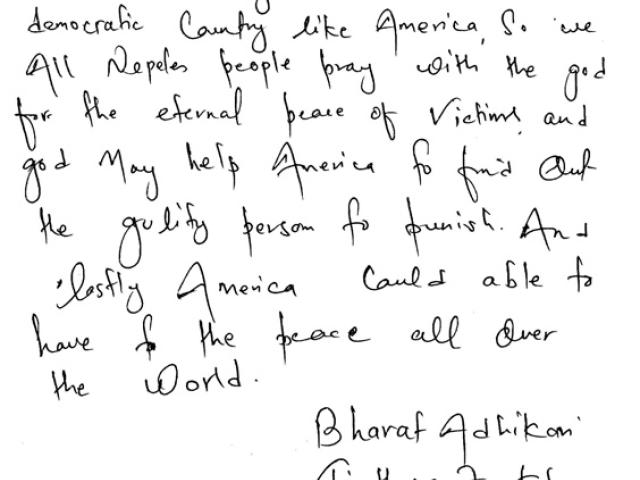 democratic Country like America, So we
All Nepeles people pray with the god
for the eternal peace of Victims and
god May help America to find Out
the gulity person to punish. And
lastly America Could able to
have the peace all Over
the World.
Bharat Adhikari